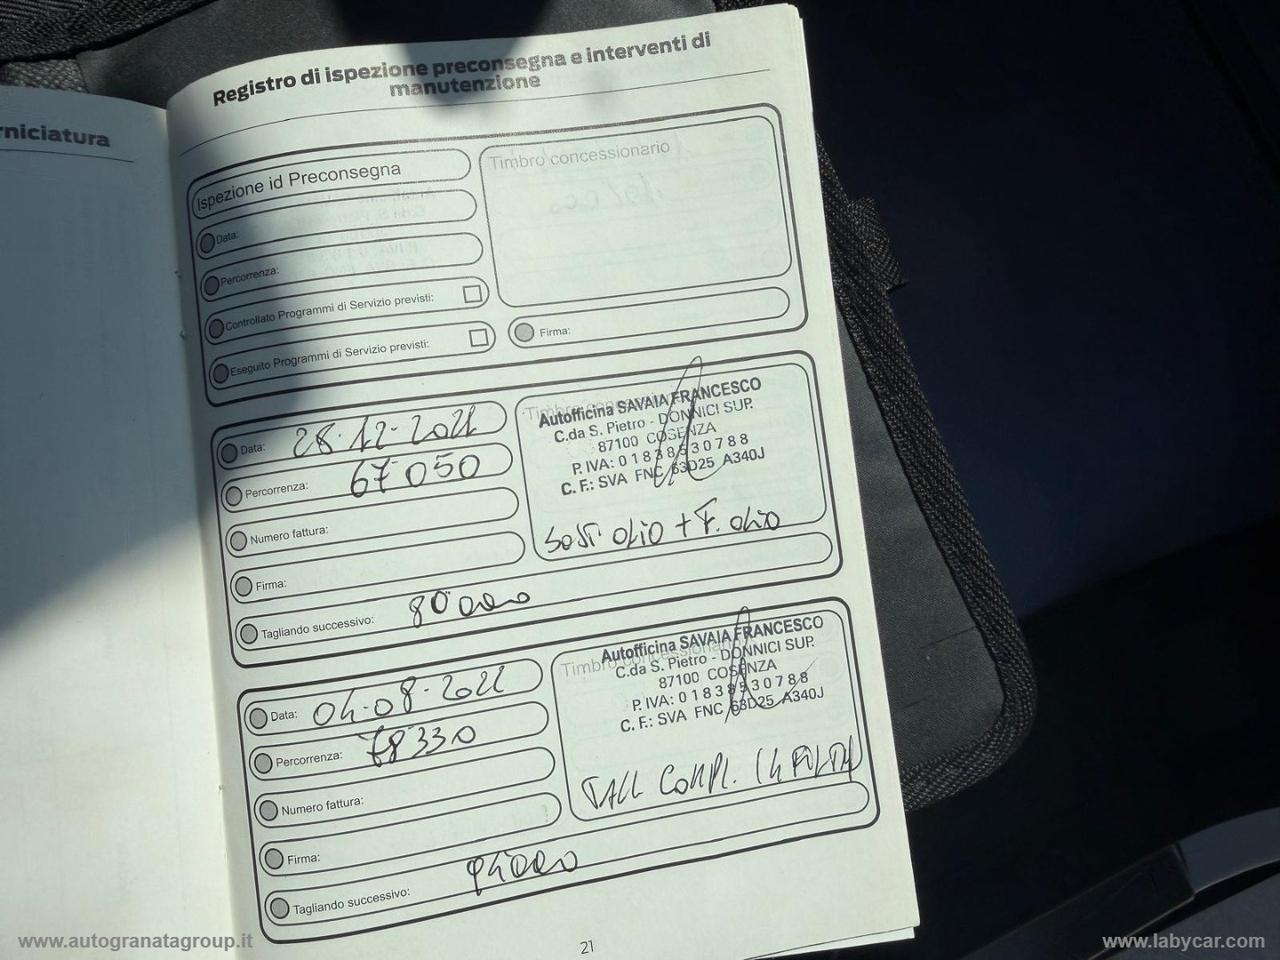 rniciatura
Registro di ispezione preconsegna e interventi di
manutenzione
Ispezione id Preconsegna
Timbro concessionario
Data:
Percorrenza:
Controllato Programmi di Servizio previsti:
Eseguito Programmi di Servizio previsti:
Firma:
Data: 28-12-2021
Percorrenza: 67050
Numero fattura:
Firma:
Tagliando successivo: 80000
Autofficina SAVAIA FRANCESCO
C.da S. Pietro - DONNICI SUP.
87100 COSENZA
P. IVA: 0 1 8 3 8 5 3 0 7 8 8
C. F.: SVA FNC 63D25 A340J
Sost. olio + F. olio
Data: 04-08-2022
Percorrenza: 78330
Numero fattura:
Firma:
Tagliando successivo:
Timbro concessionario
Autofficina SAVAIA FRANCESCO
C.da S. Pietro - DONNICI SUP.
87100 COSENZA
P. IVA: 0 1 8 3 8 5 3 0 7 8 8
C. F.: SVA FNC 63D25 A340J
TAGL COMPL.
21
www.autogranatagroup.it
www.labycar.com